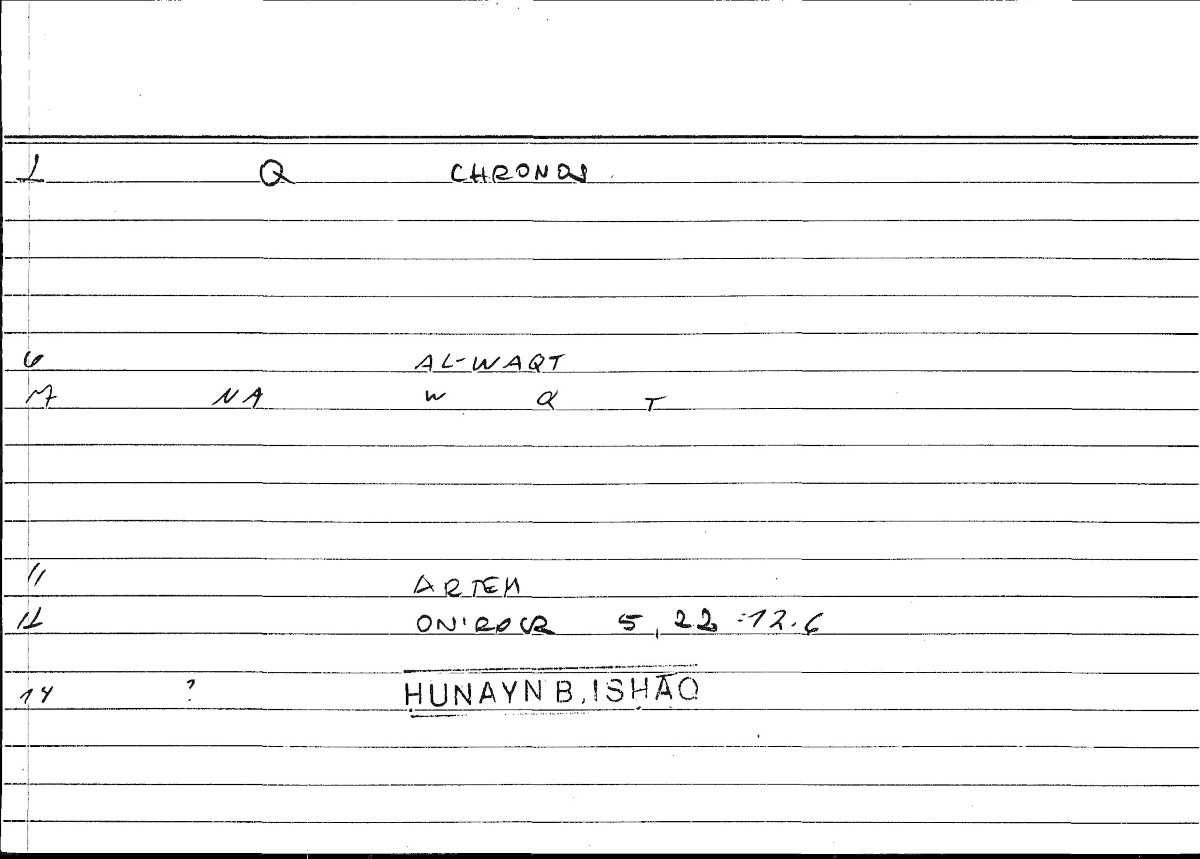 1 Q CHRONOS
6 AL-WAQT
7 NA W Q T
11 ARTEM
12 ONIROCR 5,22 -12.6
14 ? ḤUNAYN B. ISḤĀQ